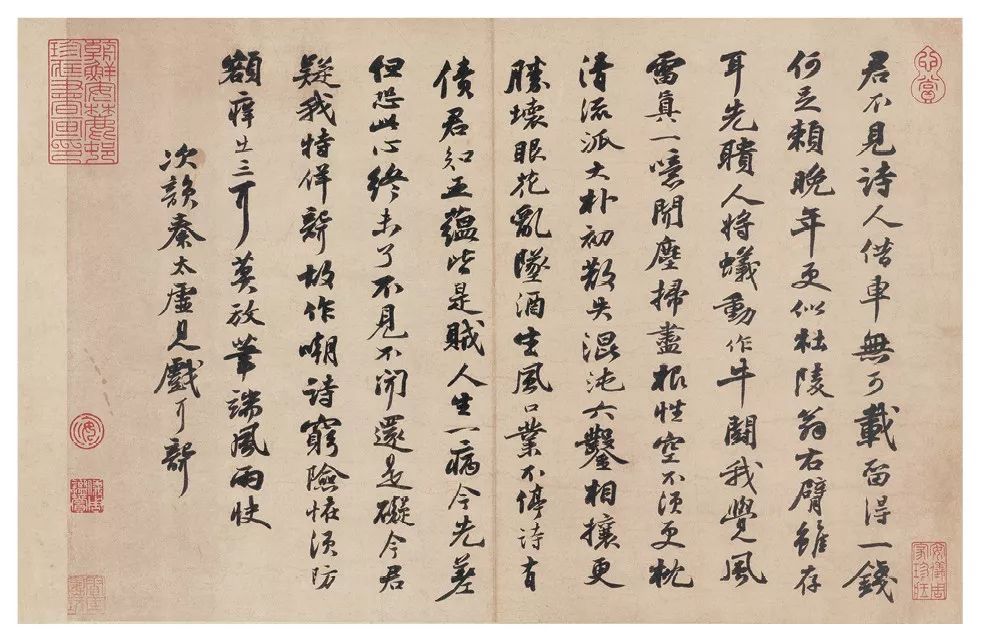 心賞
安儀周家珍藏
君不見詩人借車無可載留得一錢
何足賴晚年更似杜陵翁右臂雖存
耳先聵人將蟻動作牛鬪我覺風
雷真一噫聞塵掃盡根性空不須更枕
清流派大朴初散失混沌六鑿相攘更
勝壞眼花亂墜酒生風口業不停詩有
債君知五蘊皆是賊人生一病今先差
但恐此心終未了不見不聞還是礙今君
疑我特佯聾故作嘲詩窮險怪須防
額痒出三耳莫放筆端風雨快
次韻秦太虛見戲耳聾
朝鮮安麓邨珍藏書畫印
安